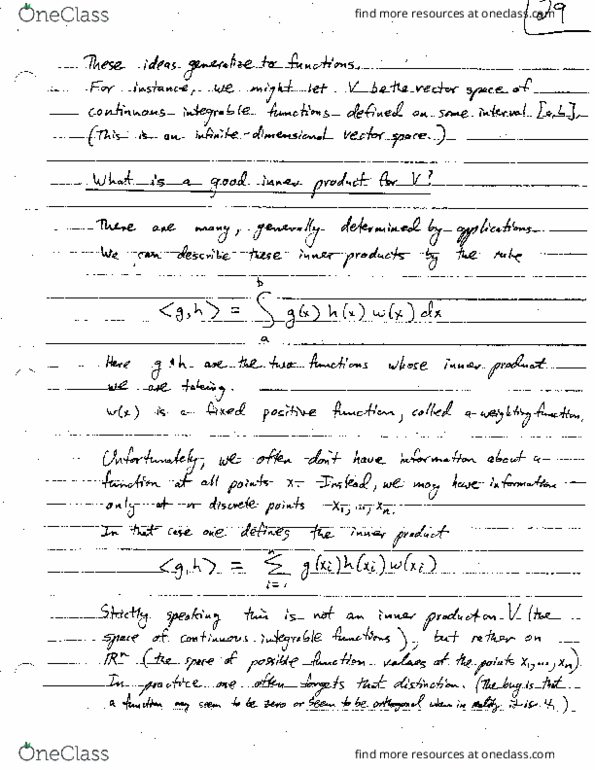 OneClass
find more resources at oneclass.com
29
These ideas generalize to functions.
For instance, we might let V be the vector space of
continuous integrable functions defined on some interval [a,b].
(This is an infinite-dimensional vector space.)
What is a good inner product for V?
There are many, generally determined by applications.
We can describe these inner products by the rule
<g,h> = ∫_a^b g(x) h(x) w(x) dx
Here g & h are the two functions whose inner product
we are taking.
w(x) is a fixed positive function, called a weighting function.
Unfortunately, we often don't have information about a
function at all points x. Instead, we may have information
only at n discrete points x₁, ..., xₙ.
In that case one defines the inner product
<g,h> = Σ_{i=1}^n g(xᵢ)h(xᵢ)w(xᵢ)
Strictly speaking this is not an inner product on V (the
space of continuous integrable functions), but rather on
ℝⁿ (the space of possible function values at the points x₁,...,xₙ).
In practice one often forgets that distinction. (The bug is that
a function may seem to be zero or seem to be orthogonal when in reality it isn't.)
OneClass
find more resources at oneclass.com